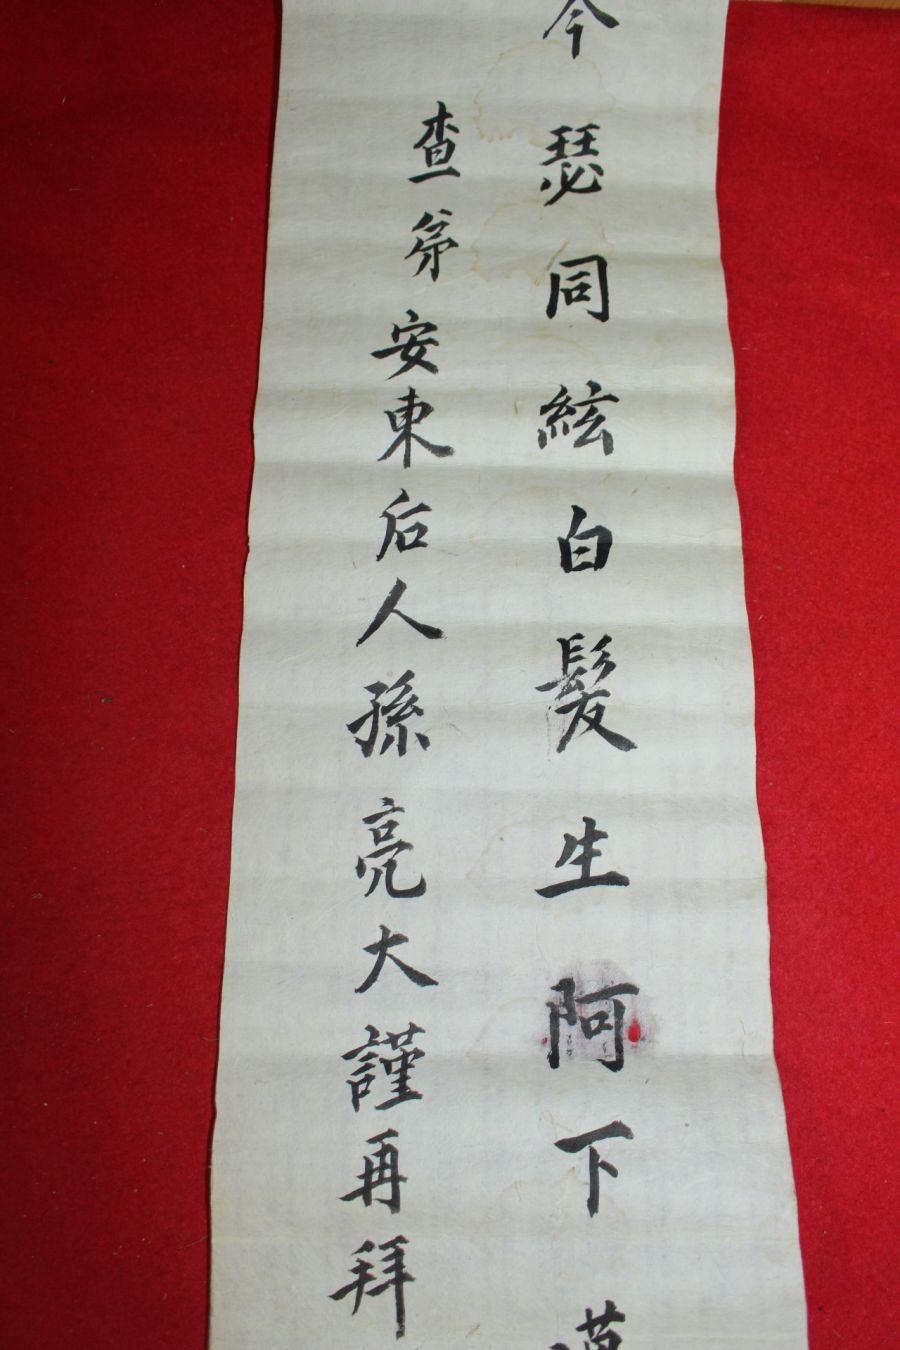 今瑟同絃白髮生阿下
查安東后人孫亮大謹再拜